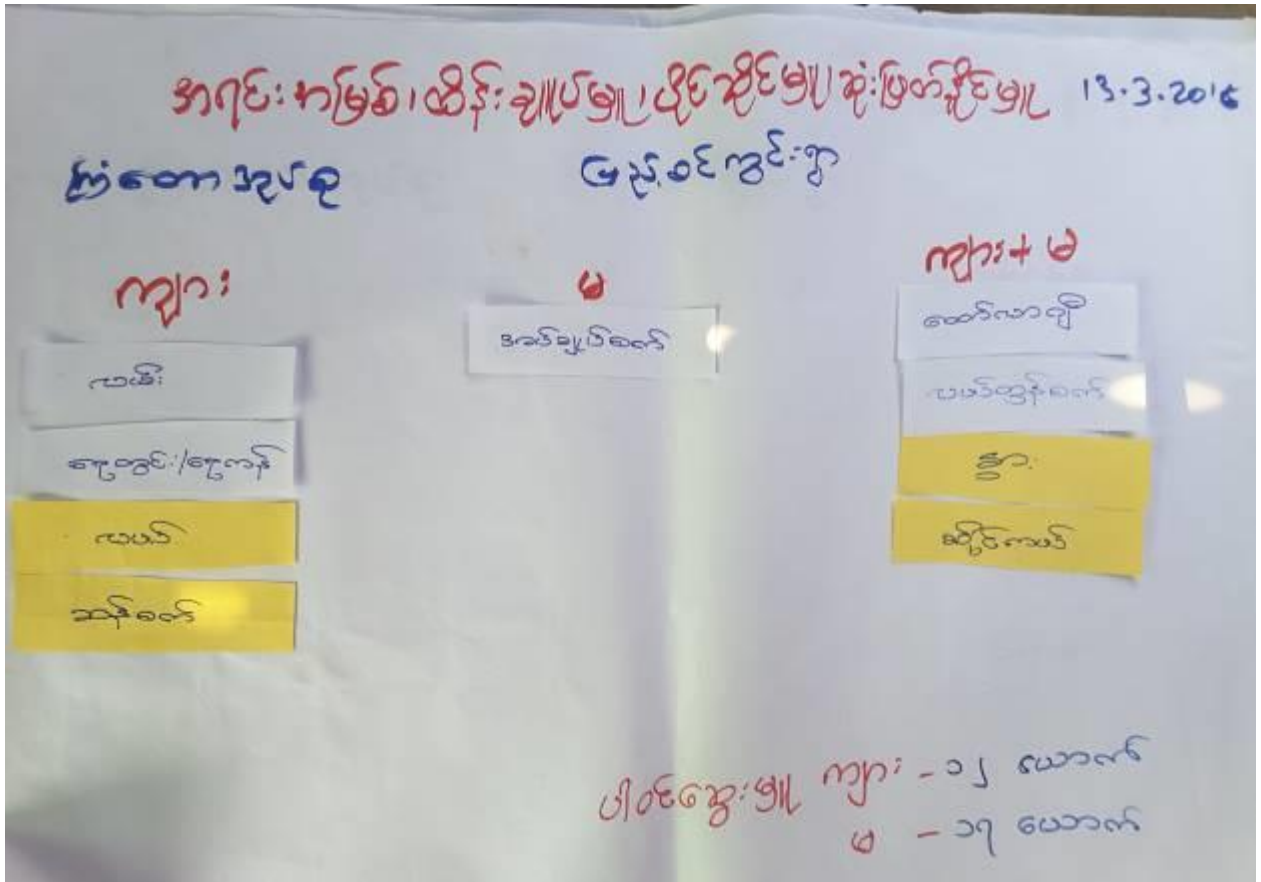 အရင်းအမြစ်၊ ထိန်းချူပ်မှူ၊ ပိုင်ဆိုင်မှူ၊ ဆုံးဖြတ်နိုင်မှူ 13.3.2016
ကြံတောအုပ်စု ပြည့်ဝင်ကွင်းရွာ
ကျား
မ
ကျား + မ
လမ်း
ရေတွင်း/ရေကန်
လယ်
ဆန်စက်
အပ်ချုပ်စက်
ထော်လာဂျီ
လယ်ထွန်စက်
နွား
ဆိုင်ကယ်
ပါဝင်ဆွေးမှူ ကျား - ၁၂ ယောက်
မ - ၁၇ ယောက်